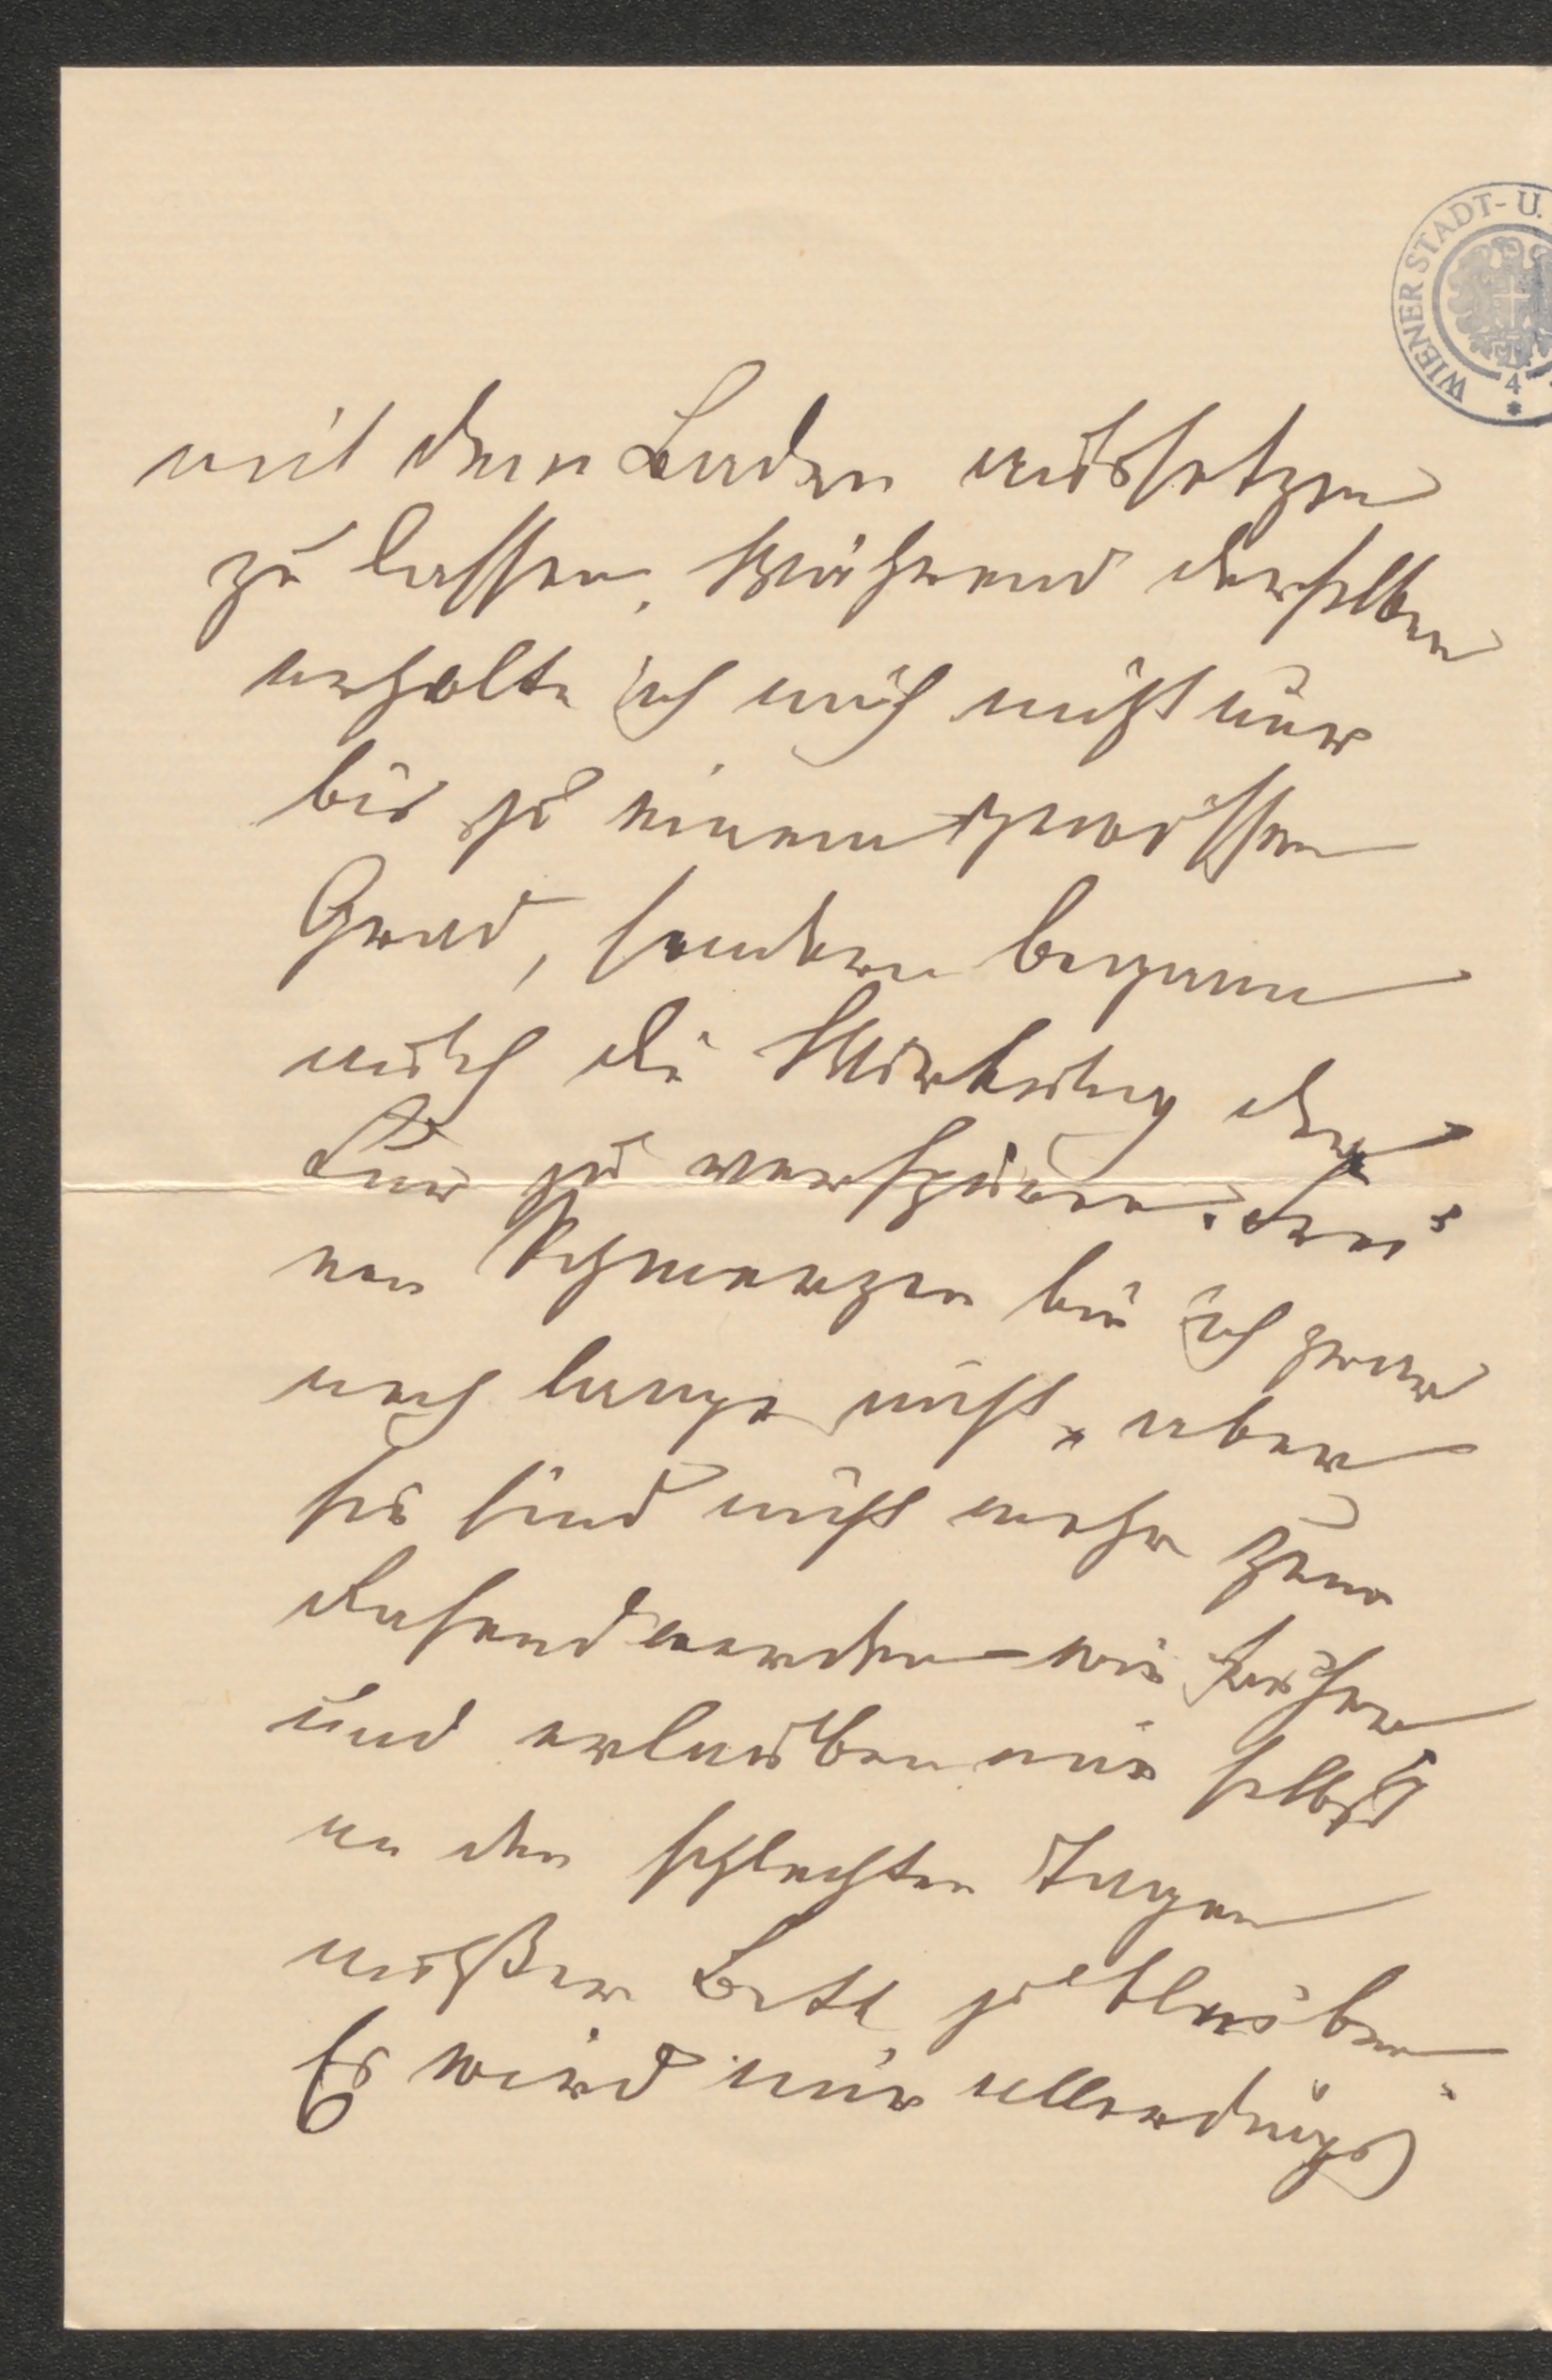 WIENER STADT- U.
4
mit dem Baden aussetzen
zu lassen. Während derselben
erholte ich mich nicht nur
bis zu einem gewissen
Grad, sondern begann
auch die Wirkung der
Kur zu verspüren. Frei
von Schmerzen bin ich zwar
noch lange nicht, aber
sie sind nicht mehr zum
Rasendwerden wie früher
und erlauben mir selbst
an den schlechten Tagen
außer Bett zu bleiben.
Es wird mir allerdings